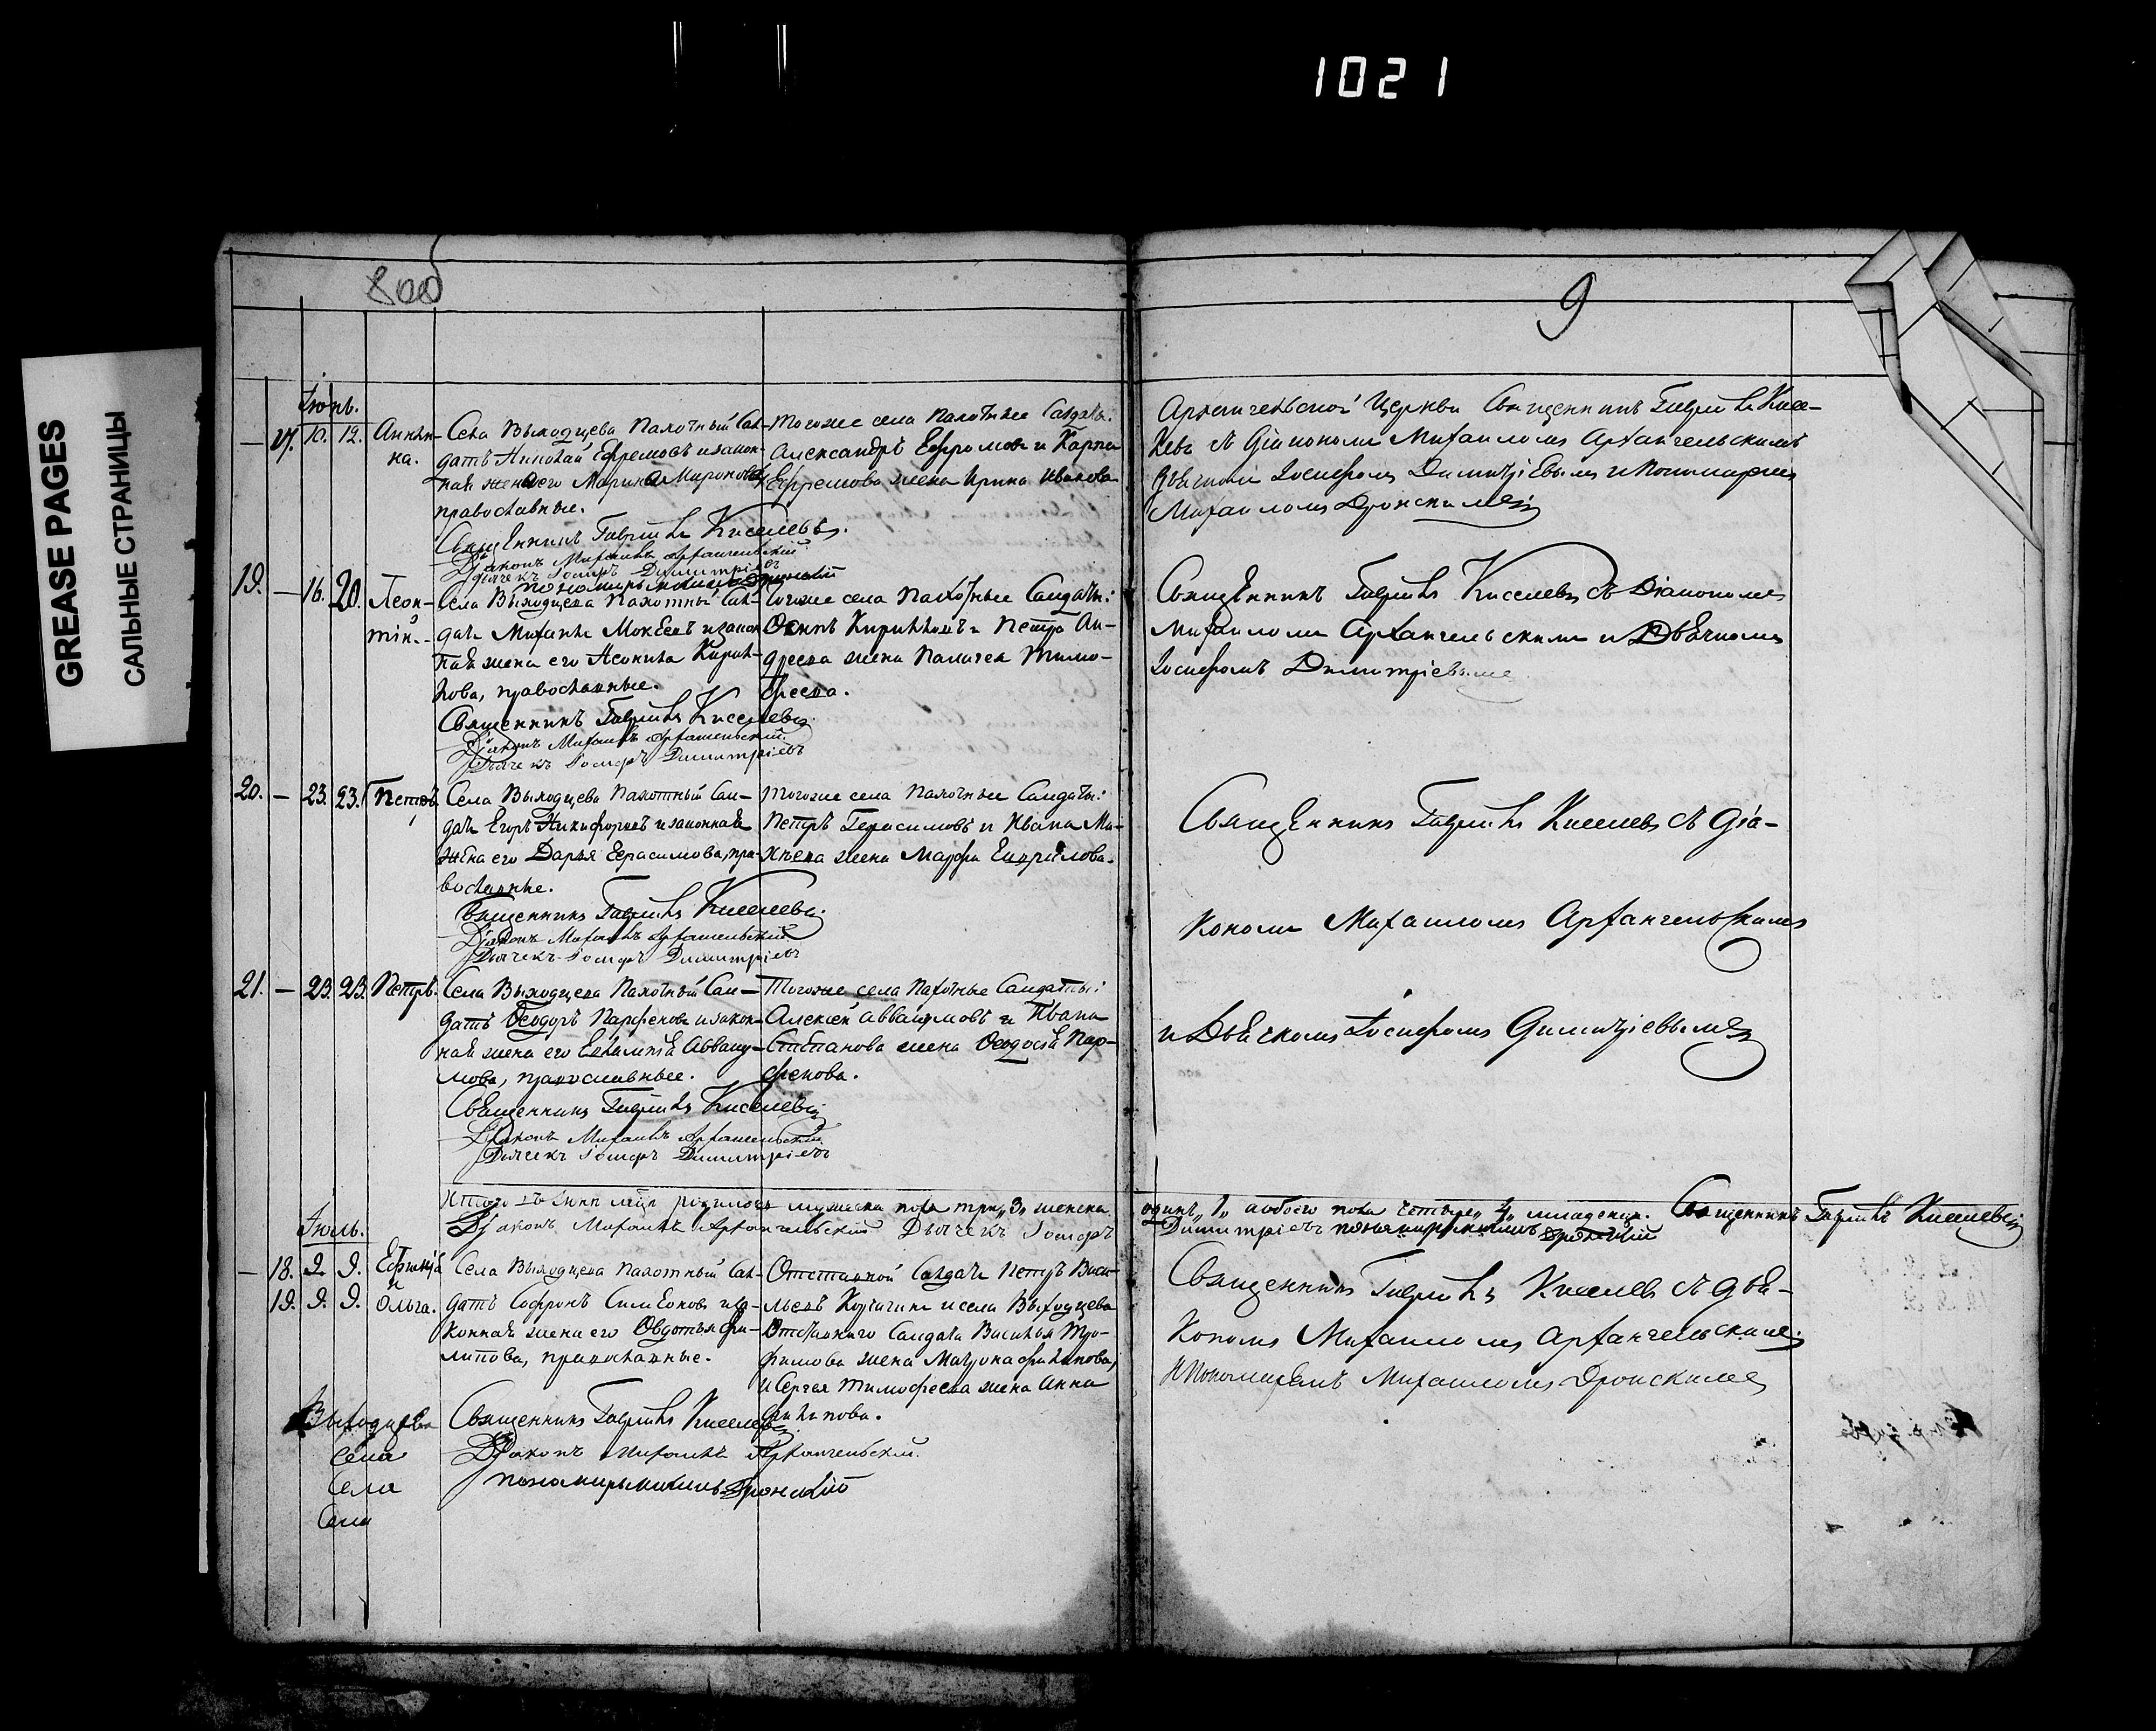 1021
GREASE PAGES
САЛЬНЫЕ СТРАНИЦЫ
800
9
Іюнь.
17. 10. 12. Акили-
на.
Села Выходцева Пахотный Сол-
датъ Николай Ефремовъ и закон-
ная жена его Марина Миронова,
православные.
Священникъ Гавріилъ Киселевъ.
Діаконъ Михаилъ Архангельскій
Дьячекъ Іосифъ Димитріевъ
пономарь михаилъ Дронскій
Тогоже села Пахотные Солдаты:
Александръ Ефремовъ и Карпа
Ефремова жена Ирина Иванова
Архангельской Церкви Священникъ Гавріилъ Кисе-
левъ съ Діакономъ Михаиломъ Архангельскимъ
Дьячкомъ Іосифомъ Димитріевымъ и Пономаремъ
Михаиломъ Дронскимъ
19. — 16. 20. Леон-
тій.
Села Выходцева Пахотный Сол-
датъ Михаилъ Мокеевъ и закон-
ная жена его Асклипа Кирил-
лова, православные.
Священникъ Гавріилъ Киселевъ
Діаконъ Михаилъ Архангельскій.
Дьячекъ Іосифъ Димитріевъ
Тогоже села Пахотные Солдаты:
Осипъ Кирилловъ и Петра Ан-
дреева жена Палагея Тимо-
феева.
Священникъ Гавріилъ Киселевъ съ Діакономъ
Михаиломъ Архангельскимъ и Дьячкомъ
Іосифомъ Димитріевымъ
20. — 23. 23. Петръ.
Села Выходцева Пахотный Сол-
датъ Егоръ Никифоровъ и законная
жена его Дарья Герасимова, пра-
вославные.
Священникъ Гавріилъ Киселевъ.
Діаконъ Михаилъ Архангельскій.
Дьячекъ Іосифъ Димитріевъ
Тогоже села Пахотные Солдаты:
Петръ Герасимовъ и Ивана Ми-
хѣева жена Марфа Гаврилова.
Священникъ Гавріилъ Киселевъ съ Діа-
кономъ Михаиломъ Архангельскимъ
и Дьячкомъ Іосифомъ Димитріевымъ
21. — 23. 23. Петръ.
Села Выходцева Пахотный Сол-
датъ Ѳеодоръ Парфеновъ и закон-
ная жена его Евлампія Авваку-
мова, православные.
Священникъ Гавріилъ Киселевъ
Діаконъ Михаилъ Архангельскій
Дьячекъ Іосифъ Димитріевъ
Тогоже села Пахотные Солдаты:
Алексѣй Аввакумовъ и Ивана
Степанова жена Ѳеодосья Пар-
фенова.
Итого въ Іюнѣ мцѣ родилось мужеска пола три „3„ женска
одинъ „1„ а обоего пола четыре „4„ младенца. Священникъ Гавріилъ Киселевъ
Діаконъ Михаилъ Архангельскій Дьячекъ Іосифъ
Димитріевъ пономарь михаилъ Дронскій
Іюль.
— 18. 9. 9. Ефимія
и
19. 9. 9. Ольга.
Села Выходцева Пахотный Сол-
датъ Софронъ Симеоновъ и за-
конная жена его Овдотья Фи-
липова, православные.
Священникъ Гавріилъ Киселевъ
Діаконъ Михаилъ Архангельскій.
пономарь михаилъ Дронскій
Отставной Солдатъ Петръ Васи-
льевъ Корчагинъ и села Выходцева
Отставнаго Солдата Василья Тро-
фимова жена Матрона Филипова,
и Сергея Тимофеева жена Анна
Филипова.
Священникъ Гавріилъ Киселевъ съ Діа-
кономъ Михаиломъ Архангельскимъ
и Пономаремъ Михаиломъ Дронскимъ
Выходцева
Села
Села
Села